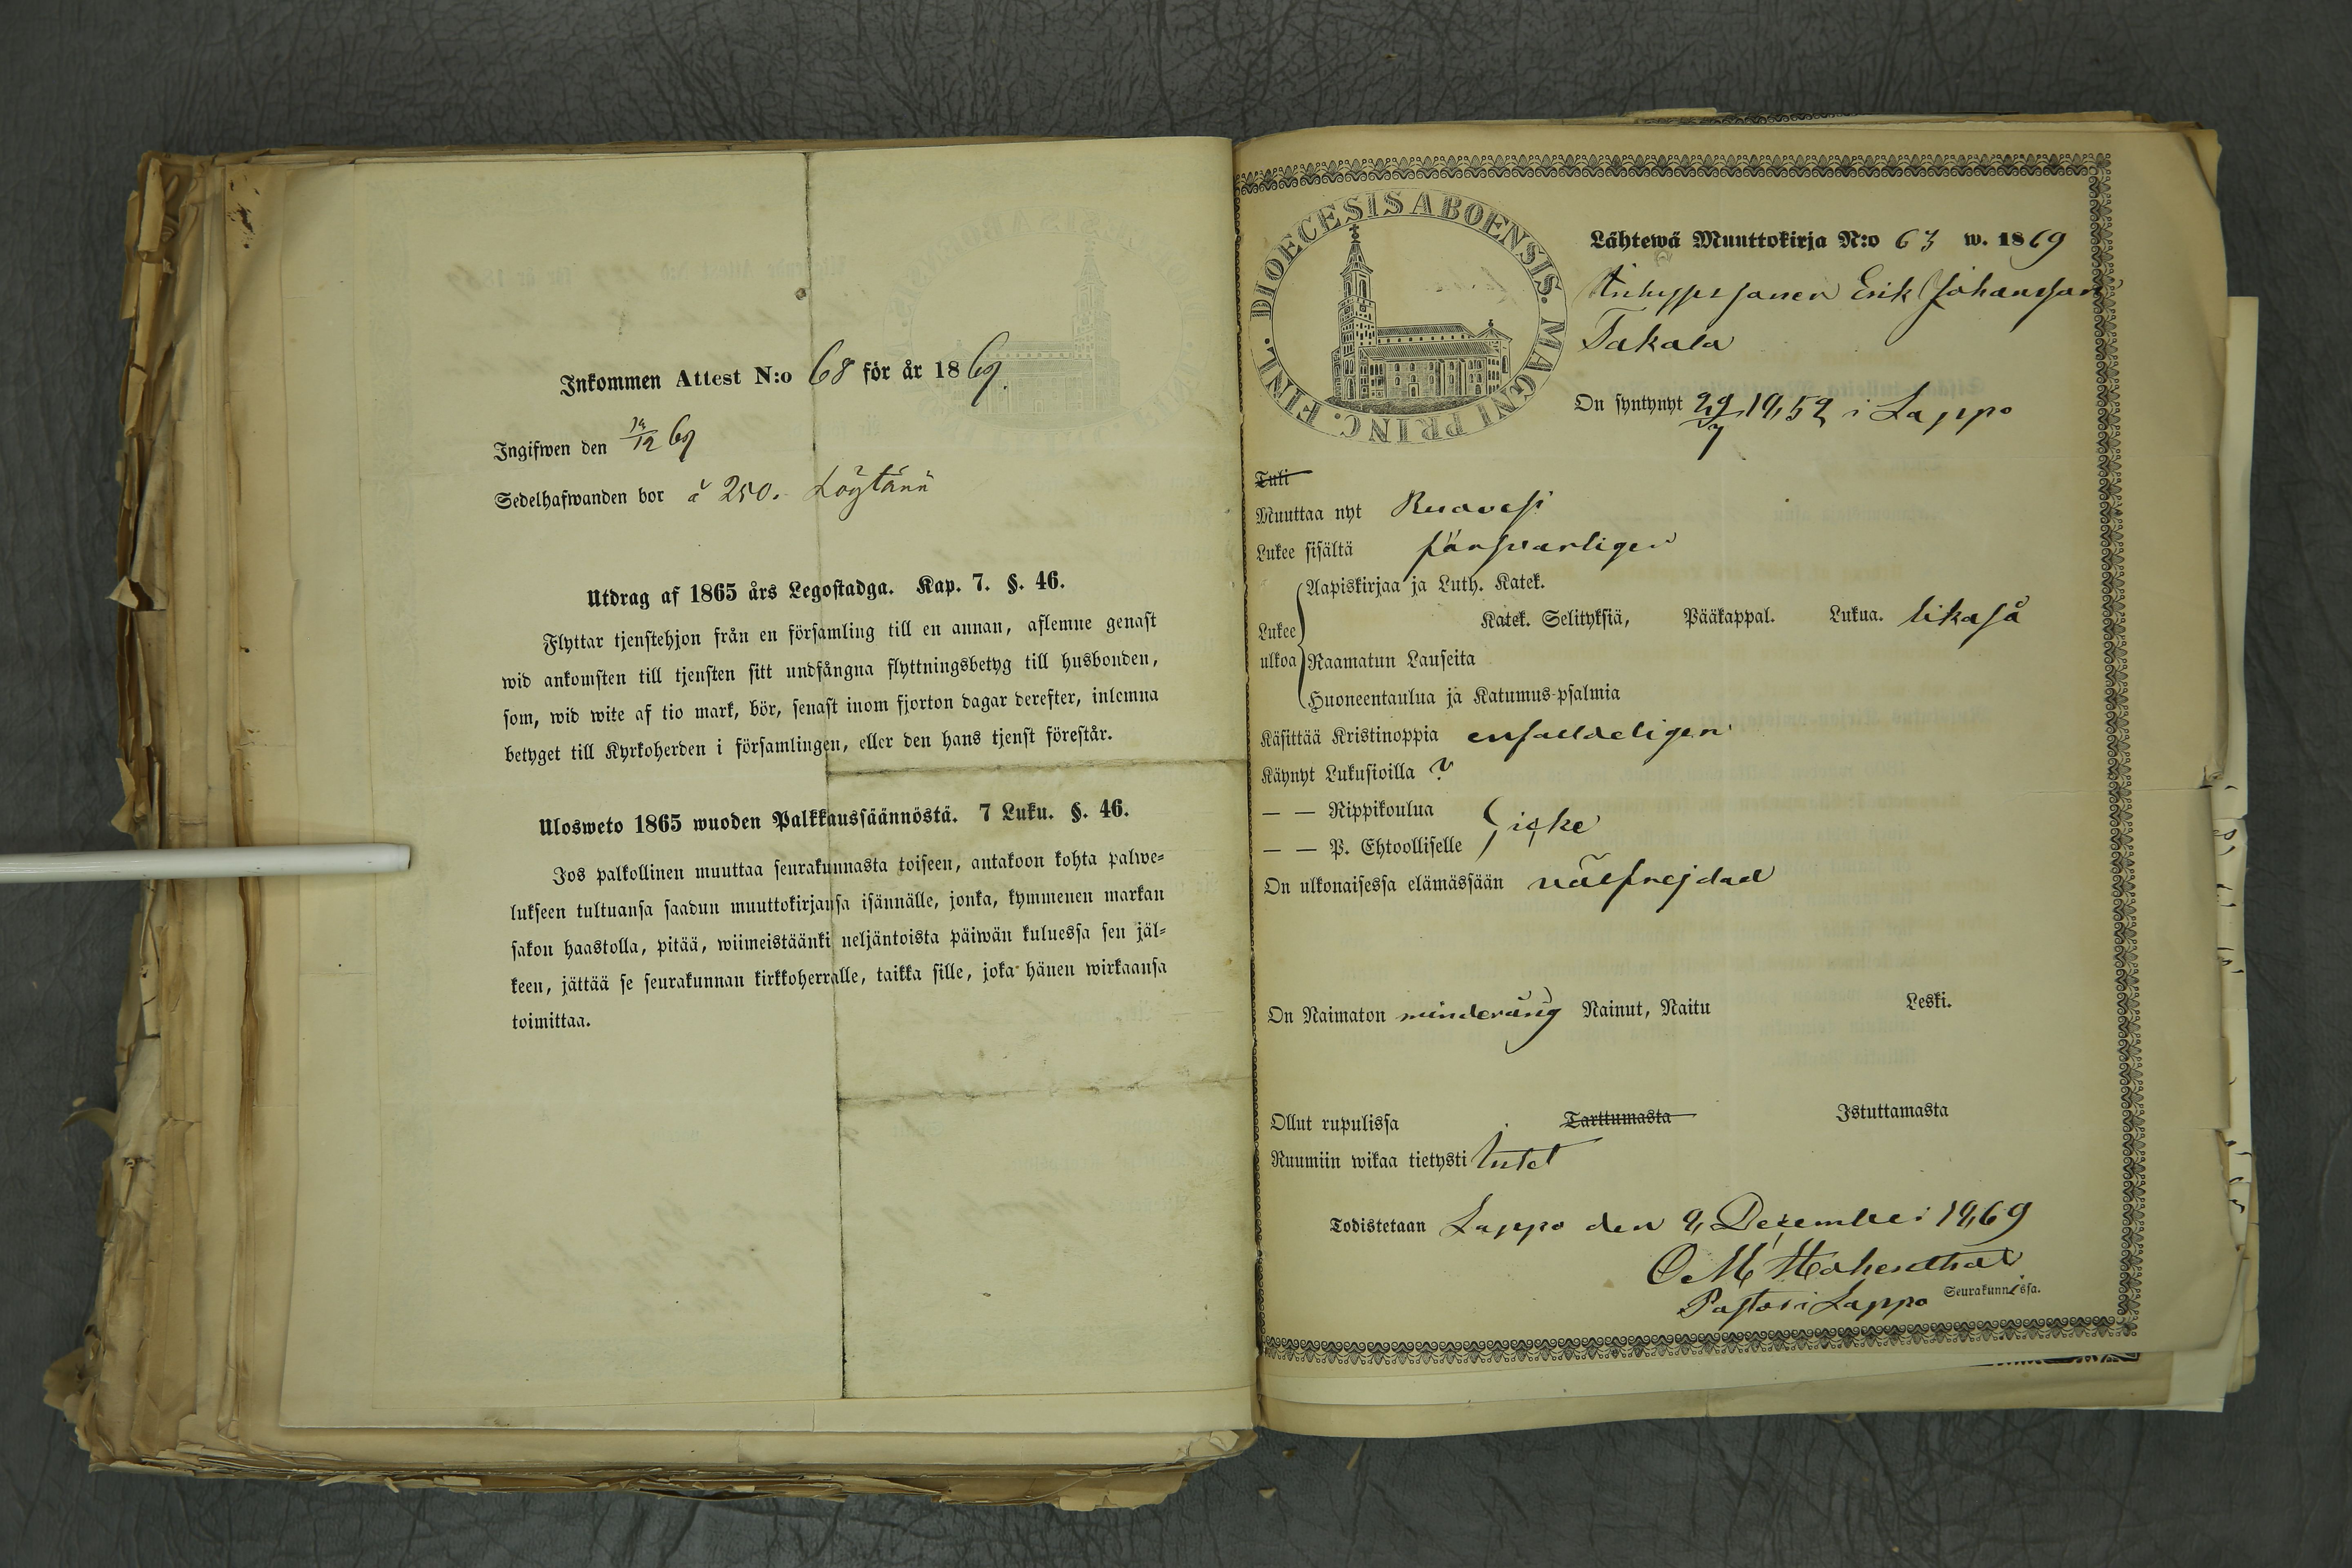 Inkommen Attest N:o 68 för år 1869.
Ingifwen den 19/12 69
Sedelhafwanden bor å 250. Löytänä
Utdrag af 1865 års Legostadga. Kap. 7. §. 46.
Flyttar tjenstehjon från en församling till en annan, aflemne genast
wid ankomsten till tjensten sitt undfångna flyttningsbetyg till husbonden,
som, wid wite af tio mark, bör, senast inom fjorton dagar derefter, inlemna
betyget till Kyrkoherden i församlingen, eller den hans tjenst förestår.
Ulosweto 1865 wuoden Palkkaussäännöstä. 7 Luku. §. 46.
Jos palkollinen muuttaa seurakunnasta toiseen, antakoon kohta palwe=
lukseen tultuansa saadun muuttokirjansa isännälle, jonka, kymmenen markan
sakon haastolla, pitää, wiimeistäänki neljäntoista päiwän kuluessa sen jäl=
keen, jättää se seurakunnan kirkkoherralle, taikka sille, joka hänen wirkaansa
toimittaa.
DIOECESIS ABOENSIS. MAGNI PRINC. FINL.
Lähtewä Muuttokirja N:o 63 w. 1869
Erik Johansson
Takala
On syntynyt 29/7 1852 i Lappo
Tuli
Muuttaa nyt Ruovesi
Lukee sisältä försvarligen
Aapiskirjaa ja Luth. Katek.
Katek. Selityksiä, Pääkappal. Lukua. likaså
Lukee
ulkoa
Raamatun Lauseita
Huoneentaulua ja Katumus-psalmia
Käsittää Kristinoppia enfaldeligen
Käynyt Lukusioilla ?
— — Rippikoulua
icke
— — P. Ehtoolliselle
On ulkonaisessa elämässään välfrejdad
On Naimaton minderårig Nainut, Naitu Leski.
Ollut rupulissa Tarttumasta Istuttamasta
Ruumiin wikaa tietysti Intet
Todistetaan Lappo den 9 December 1869
Seurakunnissa.
Pastor i Lappo